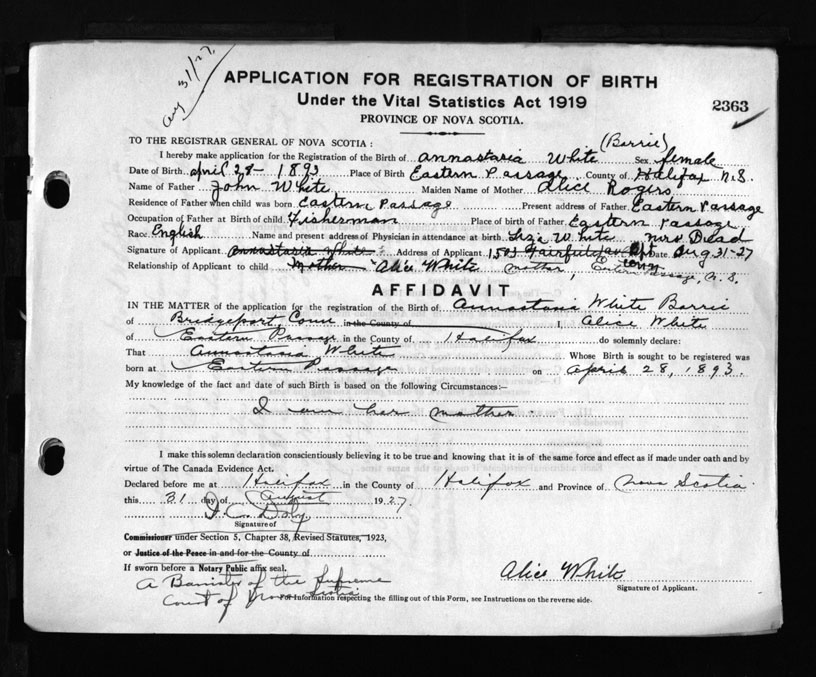 Aug 31/27
APPLICATION FOR REGISTRATION OF BIRTH
Under the Vital Statistics Act 1919
2363
PROVINCE OF NOVA SCOTIA.
TO THE REGISTRAR GENERAL OF NOVA SCOTIA :
(Barrie)
I hereby make application for the Registration of the Birth of Annastasia White Sex female
Date of Birth April 28 - 1893 Place of Birth Eastern Passage County of Halifax N.S.
Name of Father John White Maiden Name of Mother Alice Rogers
Residence of Father when child was born Eastern Passage Present address of Father Eastern Passage
Occupation of Father at Birth of child Fisherman Place of birth of Father Eastern Passage
Race English Name and present address of Physician in attendance at birth Liza White Mrs Dead
Signature of Applicant Annastasia White Address of Applicant 1503 Fairfield Date Aug 31-27
Relationship of Applicant to child Mother "Alice White mother, Eastern Passage, N.S.
AFFIDAVIT
IN THE MATTER of the application for the registration of the Birth of Annastasia White Barrie
of Bridgeport, Conn in the County of I, Alice White
of Eastern Passage in the County of Halifax do solemnly declare:
That Annastasia White Whose Birth is sought to be registered was
born at Eastern Passage on April 28, 1893.
My knowledge of the fact and date of such Birth is based on the following Circumstances:—
I am her mother
I make this solemn declaration conscientiously believing it to be true and knowing that it is of the same force and effect as if made under oath and by
virtue of The Canada Evidence Act.
Declared before me at Halifax in the County of Halifax and Province of Nova Scotia
this 31 day of August 1927.
Signature of
Commissioner under Section 5, Chapter 38, Revised Statutes, 1923,
or Justice of the Peace in and for the County of
If sworn before a Notary Public affix seal.
Alice White
A Barrister of the Supreme
Signature of Applicant.
Court of Nova Scotia
For Information respecting the filling out of this Form, see Instructions on the reverse side.